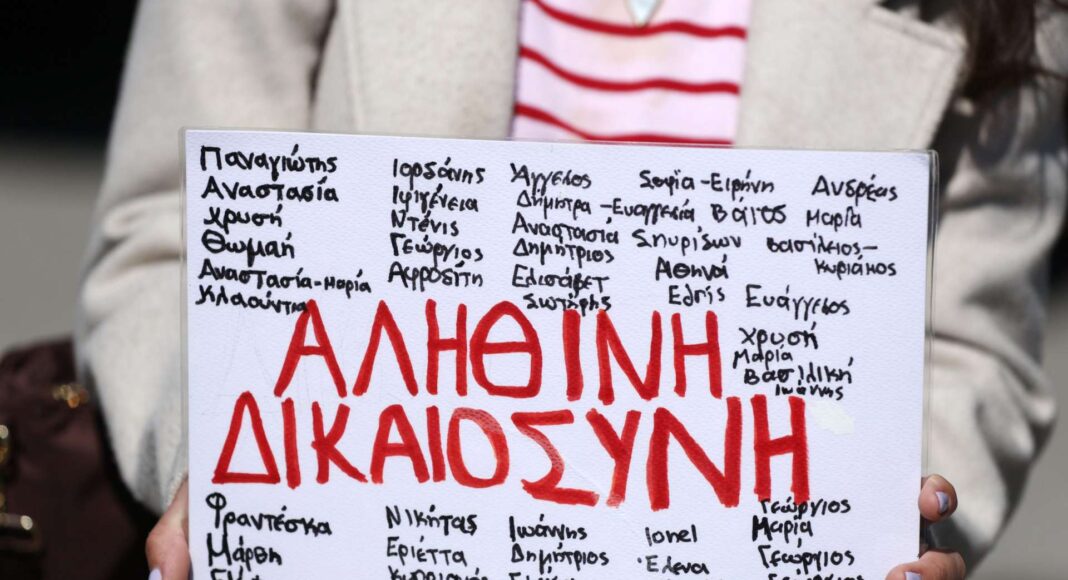 Παναγιώτης
Αναστασία
Χρυσή
Θωμαή
Αναστασία-Μαρία
Κλαούντια
Ιορδάνης
Ιφιγένεια
Ντένις
Γεώργιος
Αφροδίτη
Άγγελος
Δήμητρα-Ευαγγελία
Αναστασία
Δημήτριος
Ελισάβετ
Σωτήρης
Σοφία-Ειρήνη
Βάιος
Σπυρίδων
Αθηνά
Ελπίς
Ανδρέας
Μαρία
Βασίλειος-
Κυριάκος
Ευάγγελος
Χρυσή
Μαρία
Βασιλική
Ιωάννης
ΑΛΗΘΙΝΗ
ΔΙΚΑΙΟΣΥΝΗ
Φραντέσκα
Μάρθη
Νικήτας
Εριέττα
Κυπριανός
Ιωάννης
Δημήτριος
Ionel
Έλενα
Γεώργιος
Μαρία
Γεώργιος